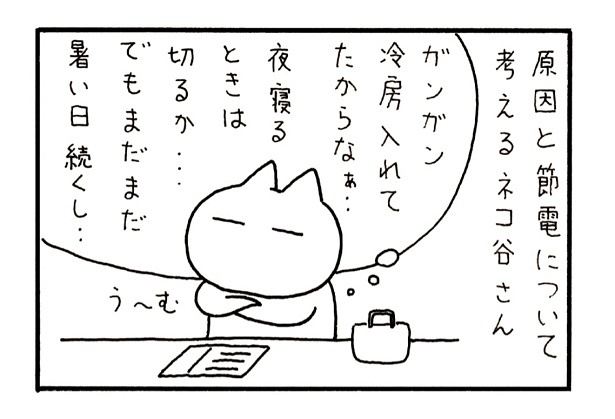 原因と節電について
考えるネコ谷さん
ガンガン
冷房入れて
たからなぁ…
夜寝る
ときは
切るか…
でもまだまだ
暑い日続くし…
う～む